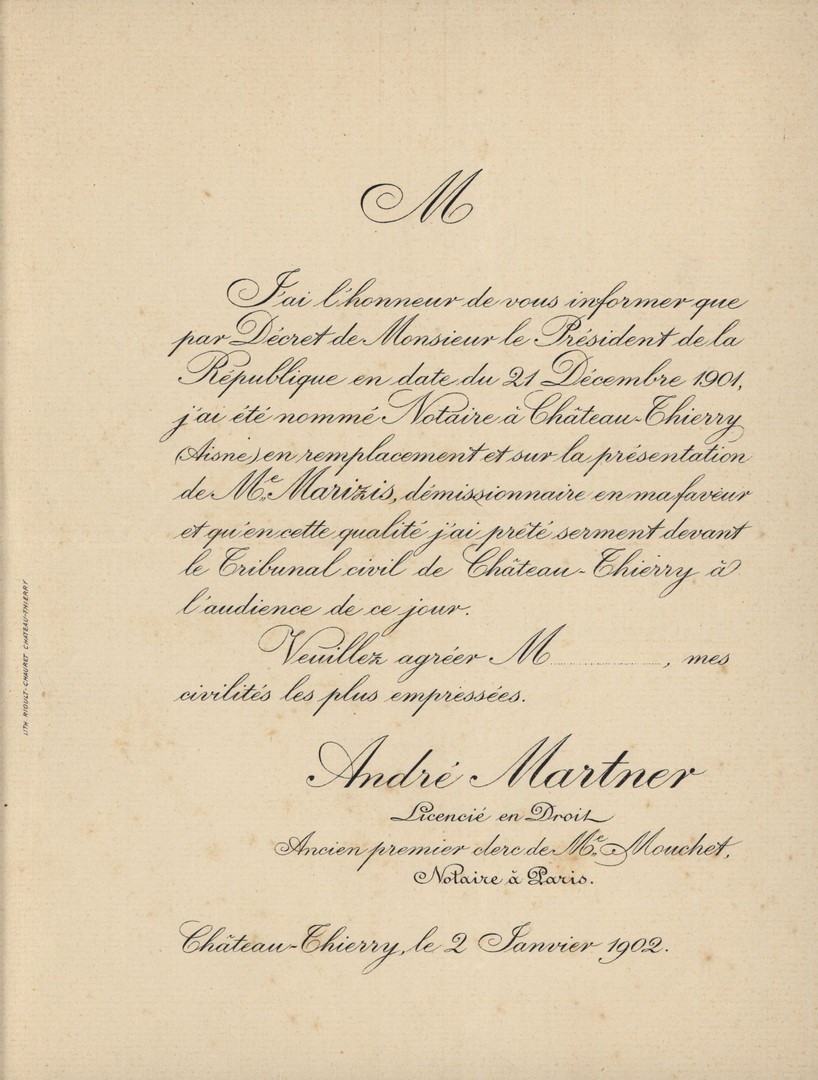 M
J'ai l'honneur de vous informer que
par Décret de Monsieur le Président de la
République en date du 21 Décembre 1901,
j'ai été nommé Notaire à Château-Thierry
(Aisne) en remplacement et sur la présentation
de Me. Marizis, démissionnaire en ma faveur
et qu'en cette qualité j'ai prêté serment devant
le Tribunal civil de Château-Thierry à
l'audience de ce jour.
Veuillez agréer M..............., mes
civilités les plus empressées.
André Martner
Licencié en Droit
Ancien premier clerc de Me. Mouchet,
Notaire à Paris.
Château-Thierry, le 2 Janvier 1902.
LITH. RIOULT-CHAURET CHATEAU-THIERRY